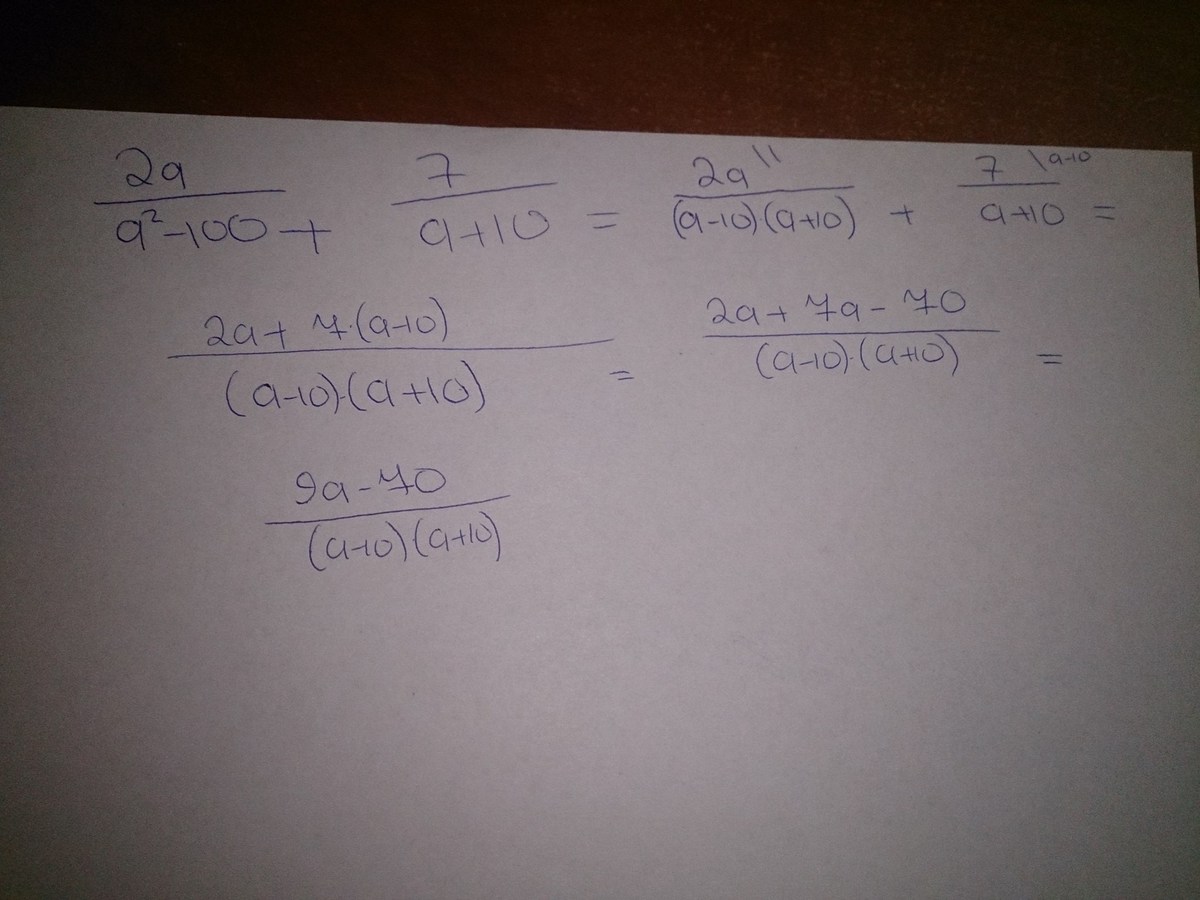 2a/(a²-100) + 7/(a+10) = 2a \1/((a-10)·(a+10)) + 7 \a-10/(a+10) =
(2a+7·(a-10))/((a-10)·(a+10)) = (2a+7a-70)/((a-10)·(a+10)) =
(9a-70)/((a-10)(a+10))